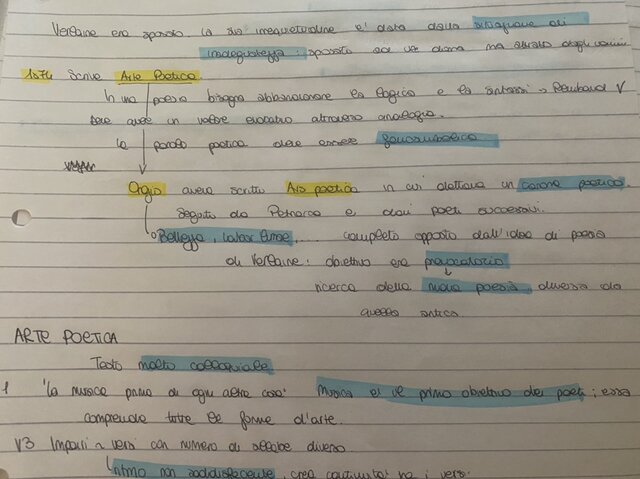 Verlaine era sposato. La sua inequietudine e' data dalla situazione di
inadeguatezza: sposato ad una donna ma attratto dagli uomini
1874 Scrive Arte Poetica
In una poesia bisogna abbandonare la logica e la sintassi → Rimbaud V
deve avere un valore evocativo attraverso analogia.
La parola poetica deve essere fonosimbolica
Orazio aveva scritto Ars poetica in cui dettava un canone poetico.
Seguito da Petrarca e dai poeti successivi.
Bellezza, labor limae, ... completo opposto dall'idea di poesia
di Verlaine: obiettivo era provocatorio
ricerca della nuova poesia, diversa da
quella antica.
ARTE POETICA
Testo molto colloquiale
1 "La musica prima di ogni altra cosa" Musica e' il primo obiettivo dei poeti; essa
comprende tutte le forme d'arte.
V3 Impari → versi con numero di sillabe diverso
Ritmo non soddisfacente, crea continuita' tra i versi.